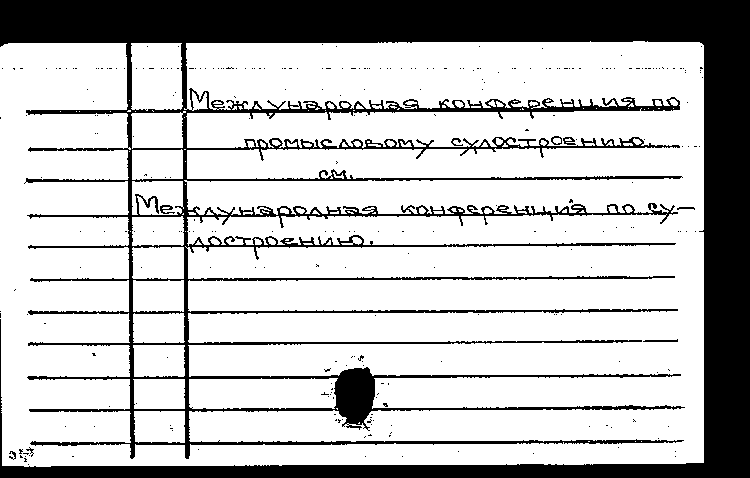 Международная конференция по
промысловому судостроению.
см.
Международная конференция по су-
достроению.